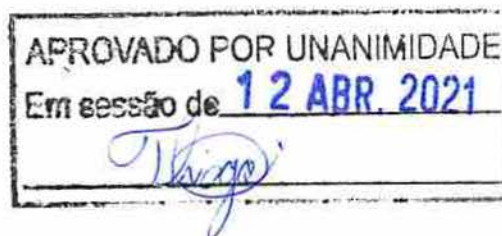 APROVADO POR UNANIMIDADE
Em sessão de 12 ABR. 2021